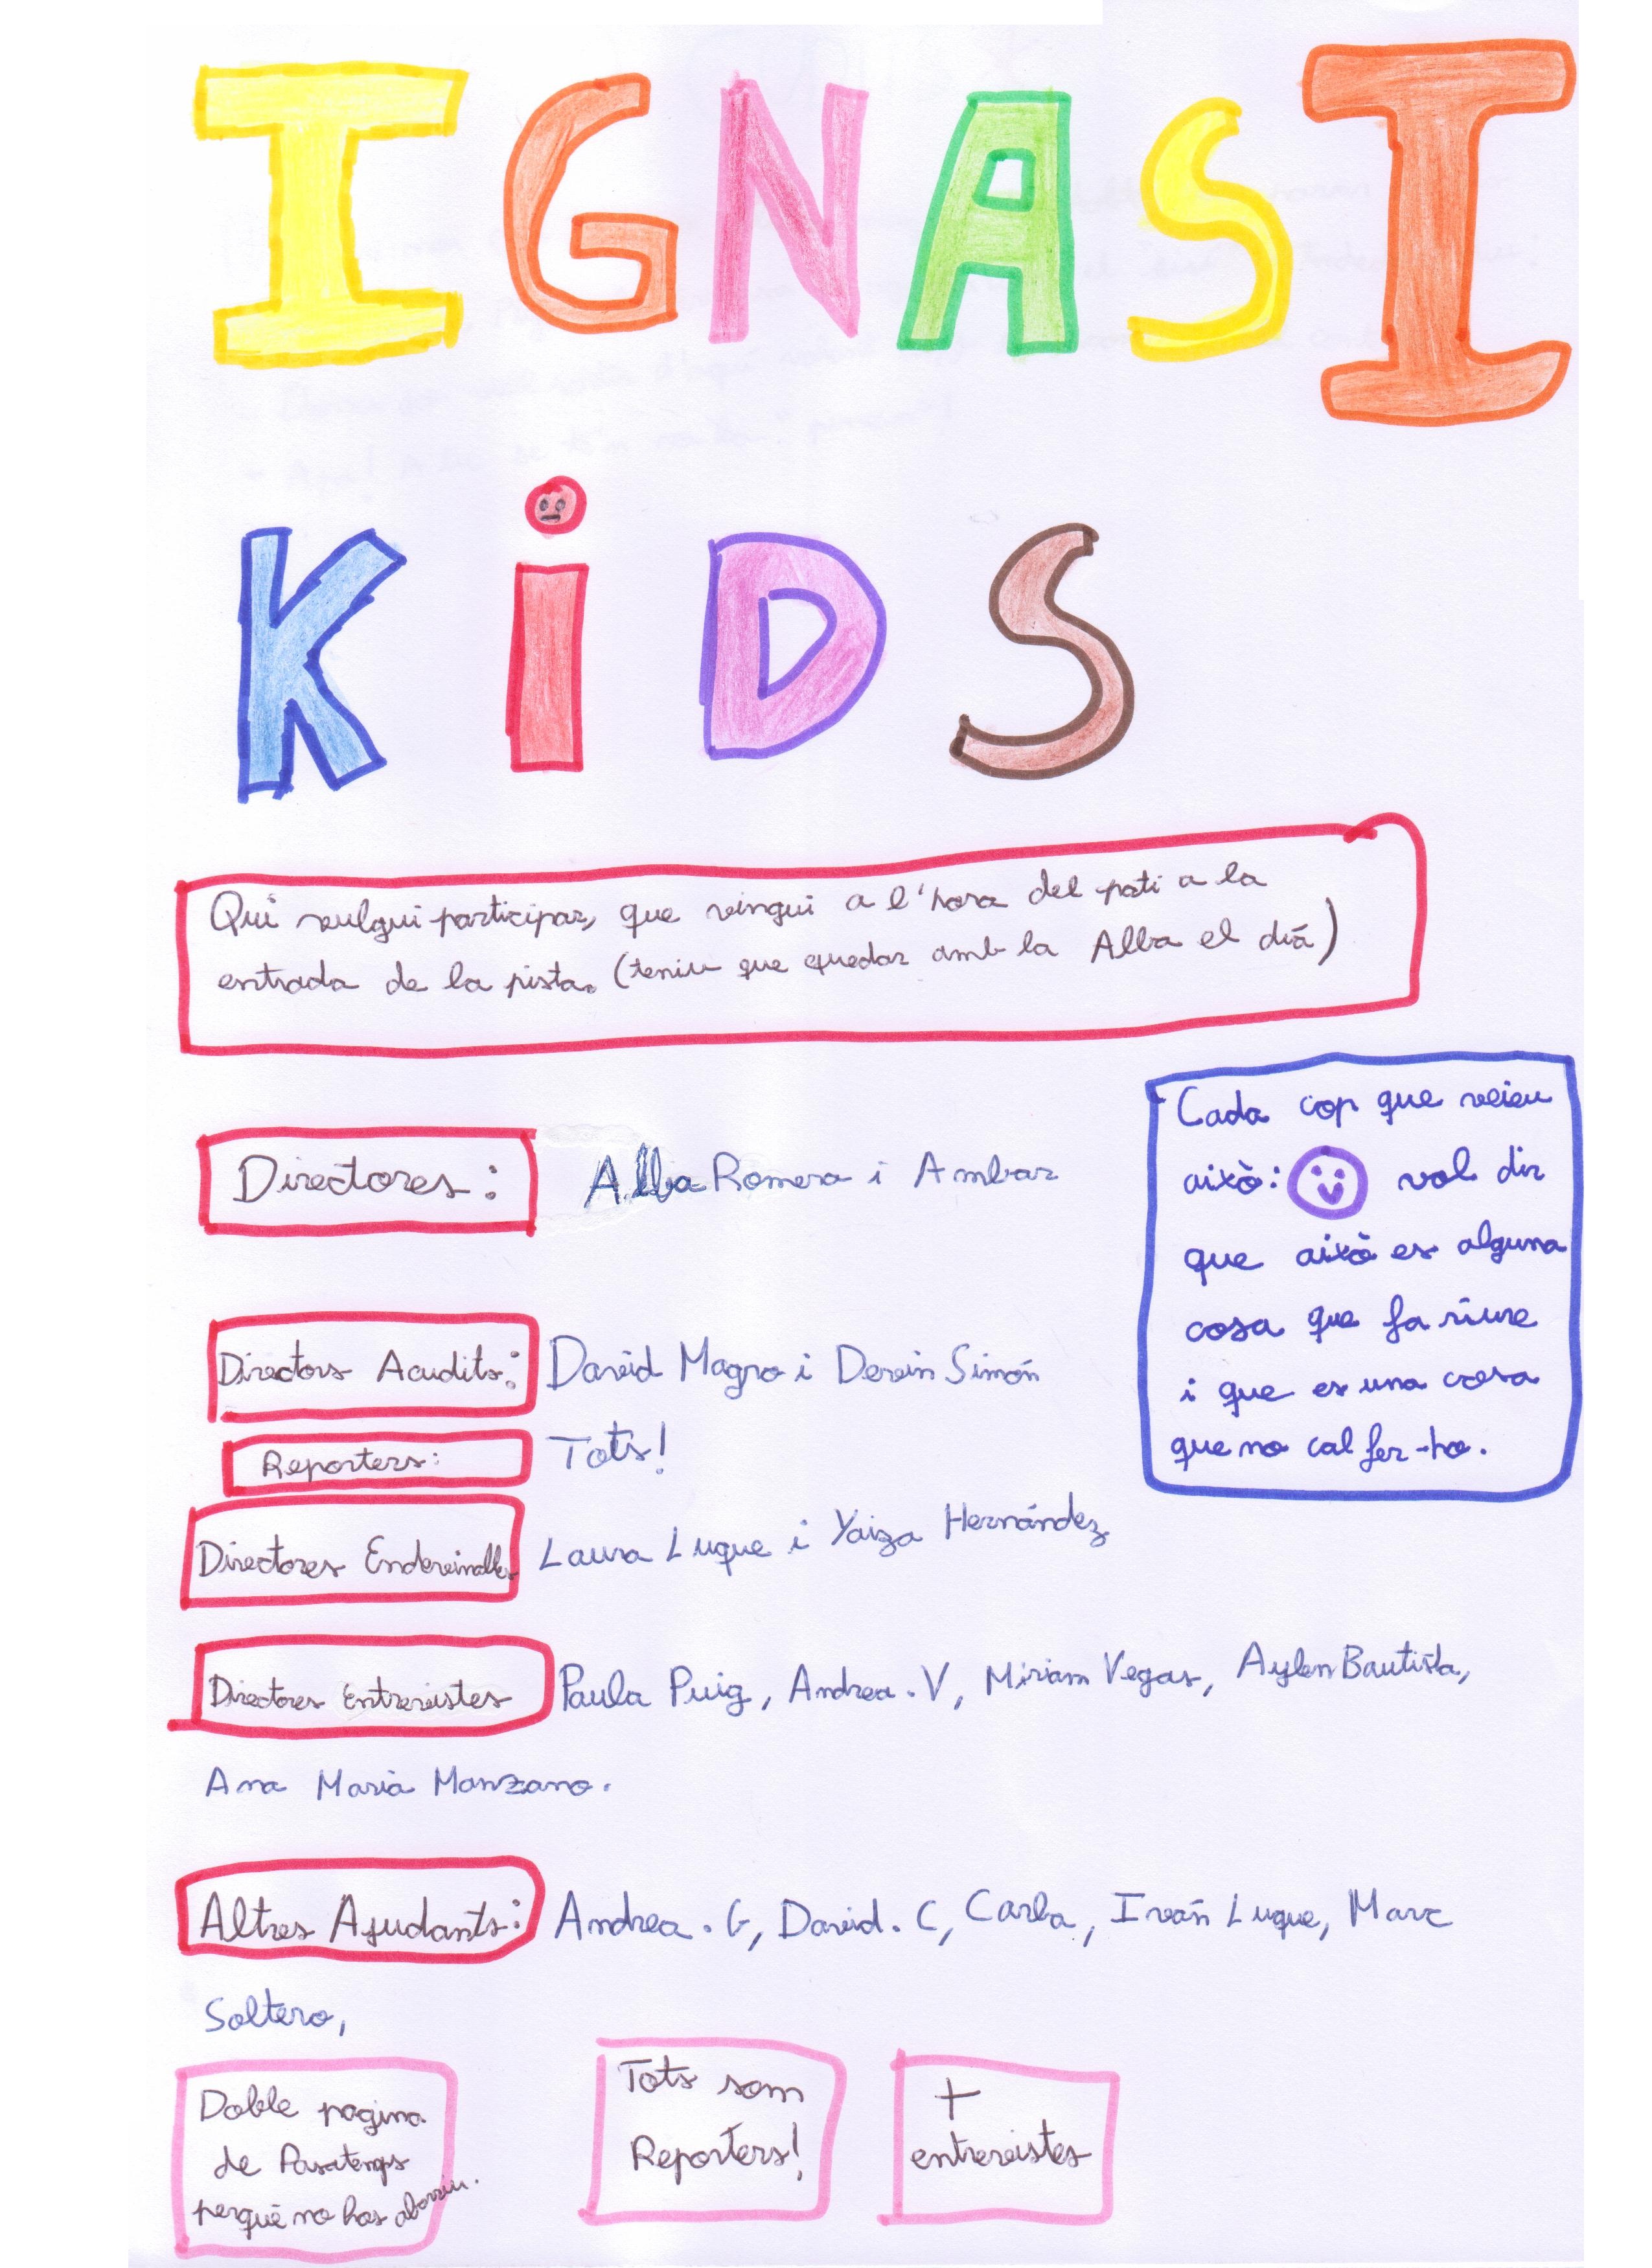 IGNASI
KiDS
Qui vulgui participar, que vingui a l'hora del pati a la
entrada de la pista. (teniu que quedar amb la Alba el diá)
Cada cop que veieu
això: vol dir
que això es alguna
cosa que fa riure
i que es una cosa
que no cal fer-ho.
Directores: Alba Romera i Ambar
Directors Acudits: David Magro i Dervin Simón
Reporters: Tots!
Directores Endevinalles Laura Luque i Yaiza Hernández
Directores Entrevistes Paula Puig, Andrea.V, Miriam Vegas, Aylen Bautista,
Ana Maria Manzano.
Altres Ajudants: Andrea.G, David.C, Carla, Iván Luque, Marc
Soltero,
Doble pagina
de Pasatemps
perquè no hos aborriu.
Tots som
Reporters!
+
entrevistes